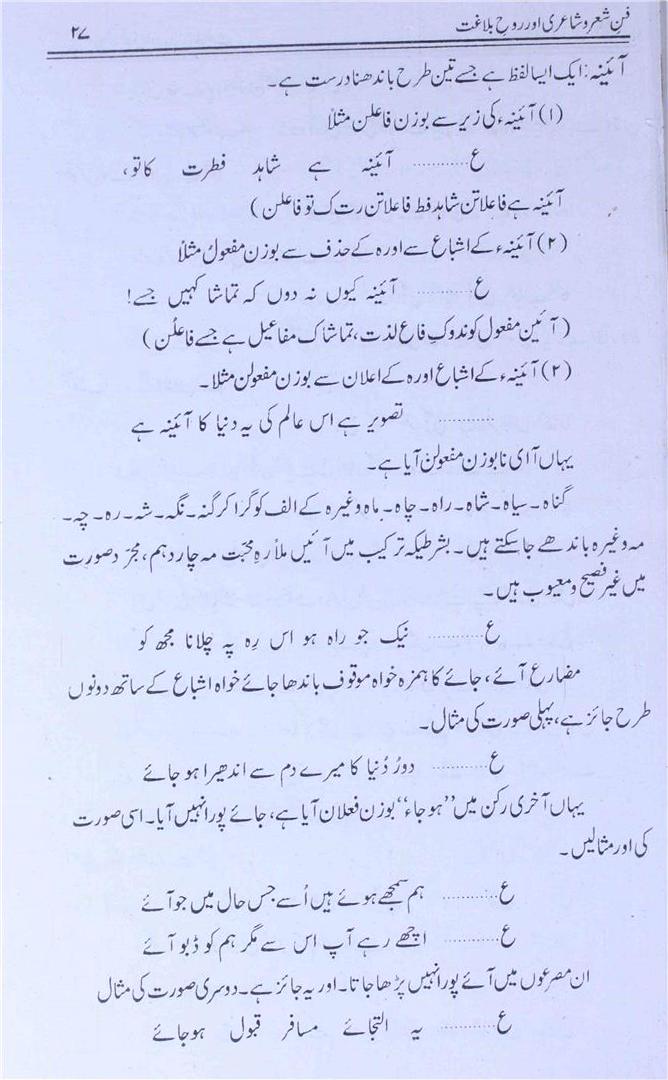 فنِ شعر و شاعری اور روحِ بلاغت
۲۷
آئینہ: ایک ایسا لفظ ہے جسے تین طرح باندھنا درست ہے۔
(۱) آئینہ ء کی زیر سے بوزن فاعلن مثلاً
ع............ آئینہ ہے شاہد فطرت کا تو،
آئینہ ہے فاعلاتن شاہد فط فاعلاتن رت ک تو فاعلن)
(۲) آئینہ ء کے اشباع سے اور ہ کے حذف سے بوزن مفعولُ مثلاً
ع............ آئینہ کیوں نہ دوں کہ تماشا کہیں جسے!
(آئین مفعول کوندوک فاع لذت، تماشاک مفاعیل ہے جسے فاعلُن)
(۲) آئینہ ء کے اشباع اور ہ کے اعلان سے بوزن مفعولن مثلا۔
............ تصویر ہے اس عالم کی یہ دنیا کا آئینہ ہے
یہاں آ ای نا بوزن مفعولن آیا ہے۔
گناہ۔ سیاہ۔ شاہ۔ راہ۔ چاہ۔ ماہ وغیرہ کے الف کو گرا کر گنہ۔ نگہ۔ شہ۔ رہ۔ چہ۔
مہ وغیرہ باندھے جاسکتے ہیں۔ بشرطیکہ ترکیب میں آئیں ملاً رہِ محبت مہ چاردہم، مجرّد صورت
میں غیر فصیح و معیوب ہیں۔
ع............ نیک جو راہ ہو اس رہ پہ چلانا مجھ کو
مضارع آئے، جائے کا ہمزہ خواہ موقوف باندھا جائے خواہ اشباع کے ساتھ دونوں
طرح جائز ہے، پہلی صورت کی مثال۔
ع............ دورُ دُنیا کا میرے دم سے اندھیرا ہو جائے
یہاں آخری رکن میں ”ہو جاء“ بوزن فعلان آیا ہے، جائے پورا نہیں آیا۔ اسی صورت
کی اور مثالیں۔
ع............ ہم سمجھے ہوئے ہیں اُسے جس حال میں جو آئے
ع............ اچھے رہے آپ اس سے مگر ہم کو ڈبو آئے
ان مصرعوں میں آئے پورا نہیں پڑھا جاتا۔ اور یہ جائز ہے۔ دوسری صورت کی مثال
ع............ یہ التجائے مسافر قبول ہو جائے